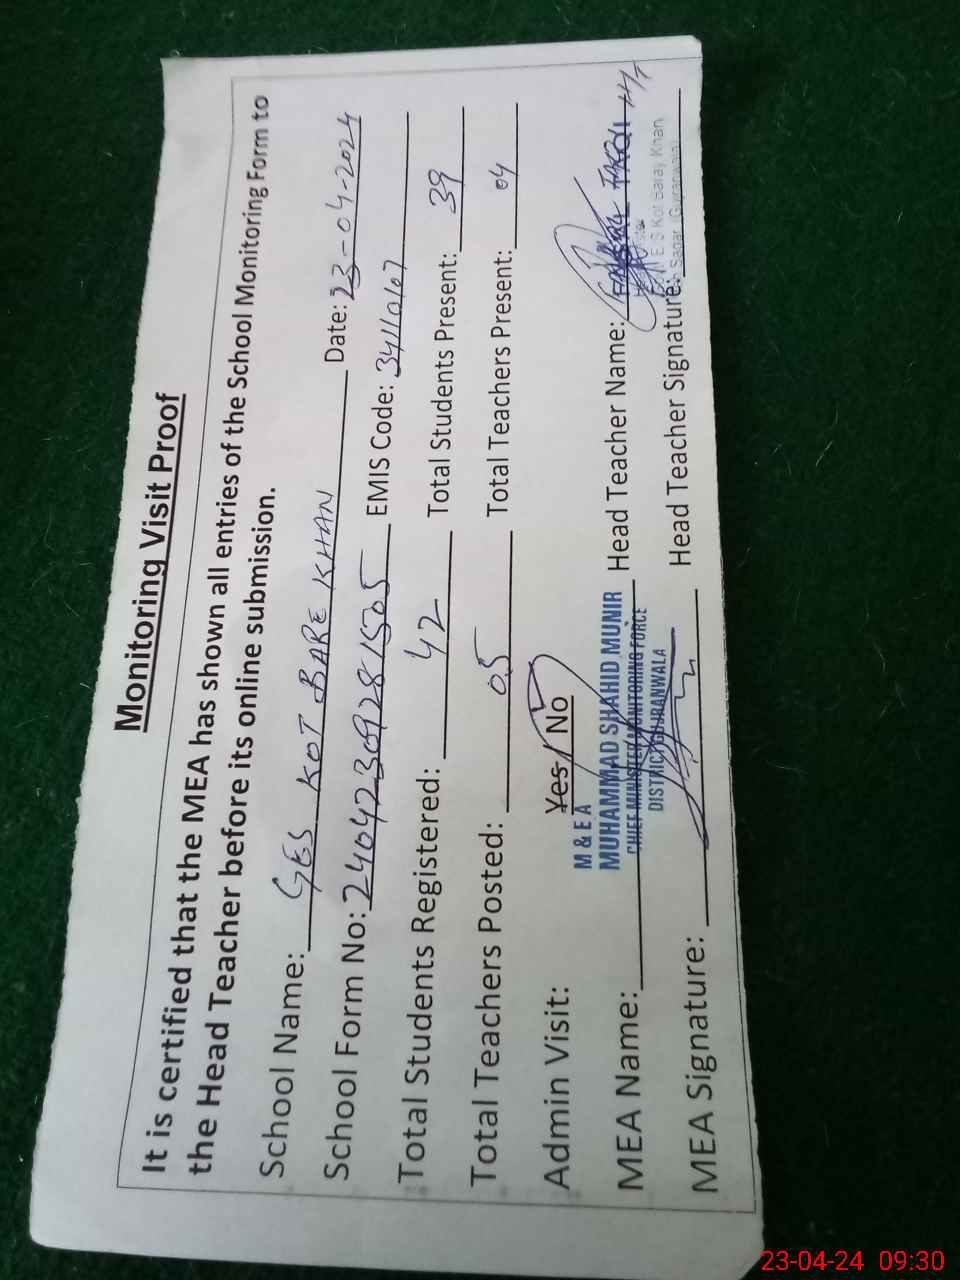 Monitoring Visit Proof
It is certified that the MEA has shown all entries of the School Monitoring Form to
the Head Teacher before its online submission.
School Name: GES KOT BARE KHAN Date: 23-04-2024
School Form No: 24042309281505 EMIS Code: 34110107
Total Students Registered: 42 Total Students Present: 39
Total Teachers Posted: 05 Total Teachers Present: 04
Admin Visit: Yes / No
M & E A
MEA Name: MUHAMMAD SHAHID MUNIR Head Teacher Name:
CHIEF MINISTER MONITORING FORCE
DISTRICT GUJRANWALA
E S Kot Baray Khan
MEA Signature: Head Teacher Signature:
23-04-24 09:30